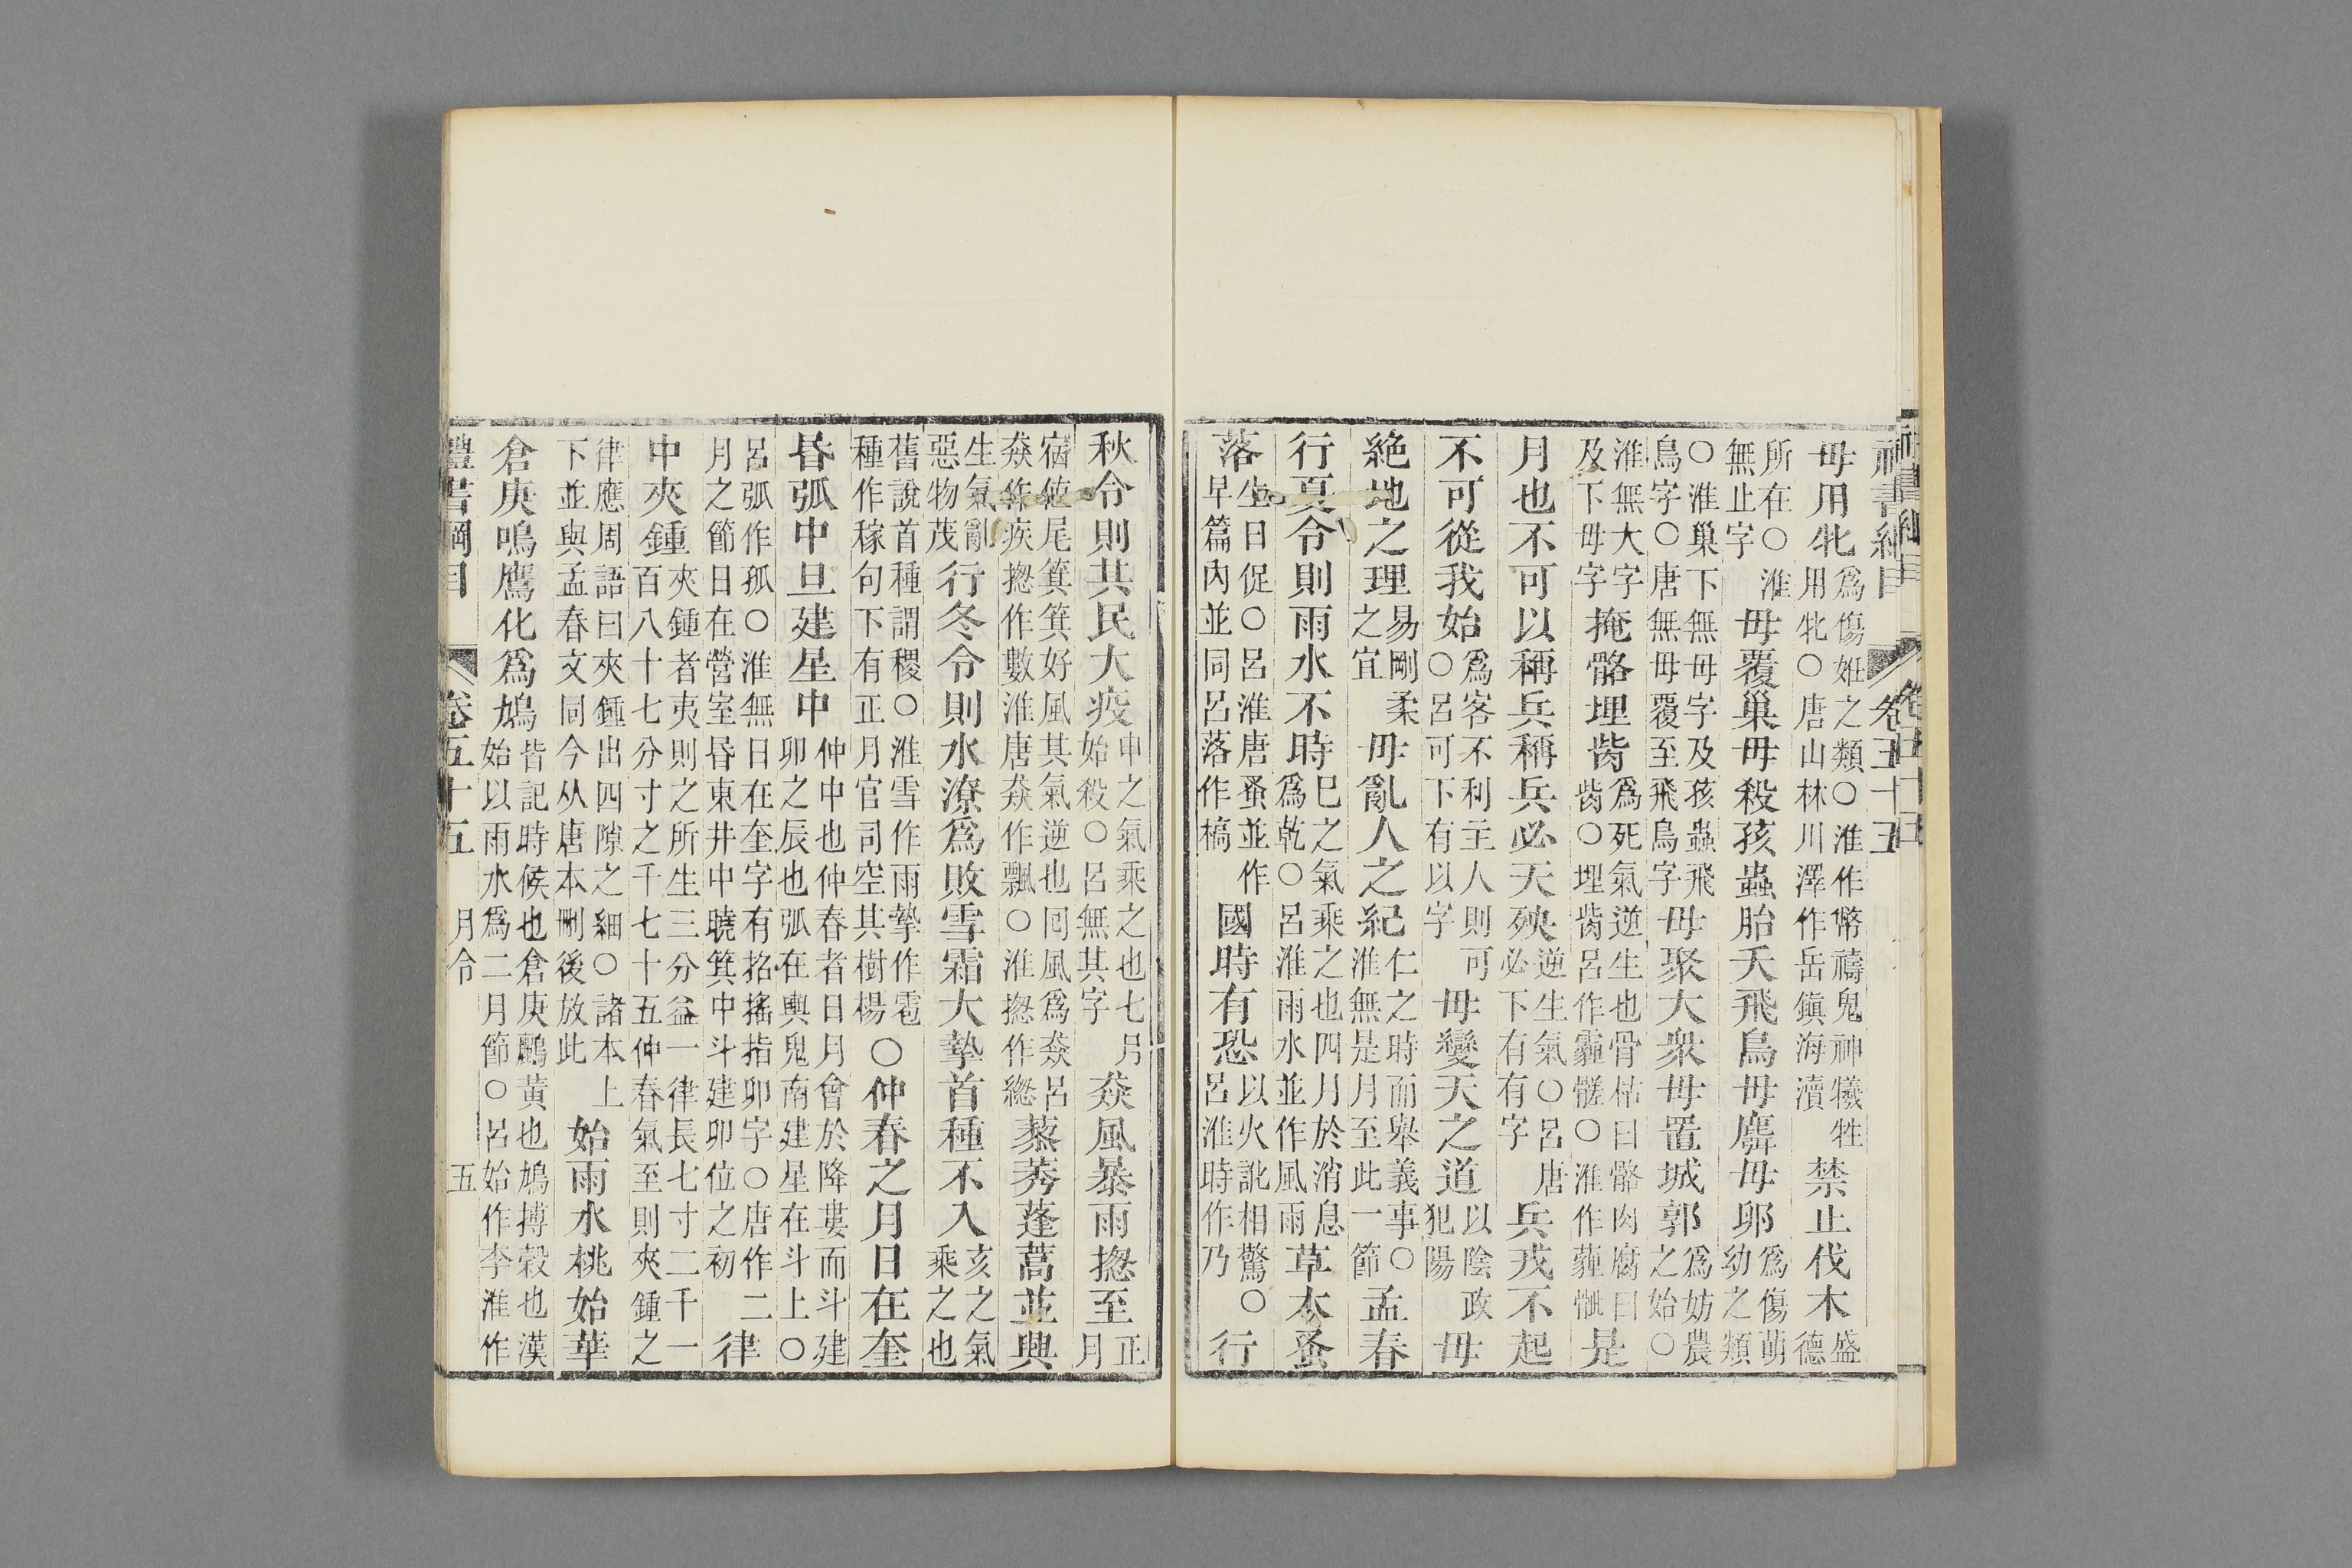 禮書綱目　卷五十五
毋用牝爲傷姙之類○淮作幣禱鬼神犧牲用牝○唐山林川澤作岳鎭海瀆禁止伐木盛德
所在○淮無止字毋覆巢毋殺孩蟲胎夭飛鳥毋麛毋卵爲傷萌幼之類
○淮巢下無毋字及孩蟲飛鳥字○唐無毋覆至飛鳥字毋聚大衆毋置城郭爲妨農之始○
淮無大字及下毋字掩骼埋胔爲死氣逆生也骨枯曰骼肉腐曰胔○埋胔呂作霾髊○淮作薶骴是
月也不可以稱兵稱兵必天殃逆生氣○呂唐必下有有字兵戎不起
不可從我始爲客不利主人則可○呂可下有以字毋變天之道以陰政犯陽毋
絶地之理易剛柔之宜毋亂人之紀仁之時而舉義事○淮無是月至此一節孟春
行夏令則雨水不時巳之氣乘之也四月於消息爲乾○呂淮雨水並作風雨草木蚤
落生日促○呂淮唐蚤並作早篇內並同呂落作槁國時有恐以火訛相驚○呂淮時作乃行
秋令則其民大疫申之氣乘之也七月始殺○呂無其字猋風暴雨揔至正月
宿直尾箕箕好風其氣逆也回風爲猋呂猋作疾揔作數淮唐猋作飄○淮揔作緫藜莠蓬蒿並興
生氣亂惡物茂行冬令則水潦爲敗雪霜大摯首種不入亥之氣乘之也
舊說首種謂稷○淮雪作雨摯作雹種作稼句下有正月官司空其樹楊○仲春之月日在奎
昏弧中旦建星中仲中也仲春者日月會於降婁而斗建卯之辰也弧在輿鬼南建星在斗上○
呂弧作孤○淮無日在奎字有招搖指卯字○唐作二月之節日在營室昏東井中曉箕中斗建卯位之初律
中夾鍾夾鍾者夷則之所生三分益一律長七寸二千一百八十七分寸之千七十五仲春氣至則夾鍾之
律應周語曰夾鍾出四隙之細○諸本上下並與孟春文同今从唐本刪後放此始雨水桃始華
倉庚鳴鷹化爲鳩皆記時候也倉庚鸝黃也鳩搏穀也漢始以雨水爲二月節○呂始作李淮作
禮書綱目　卷五十五　月令　五